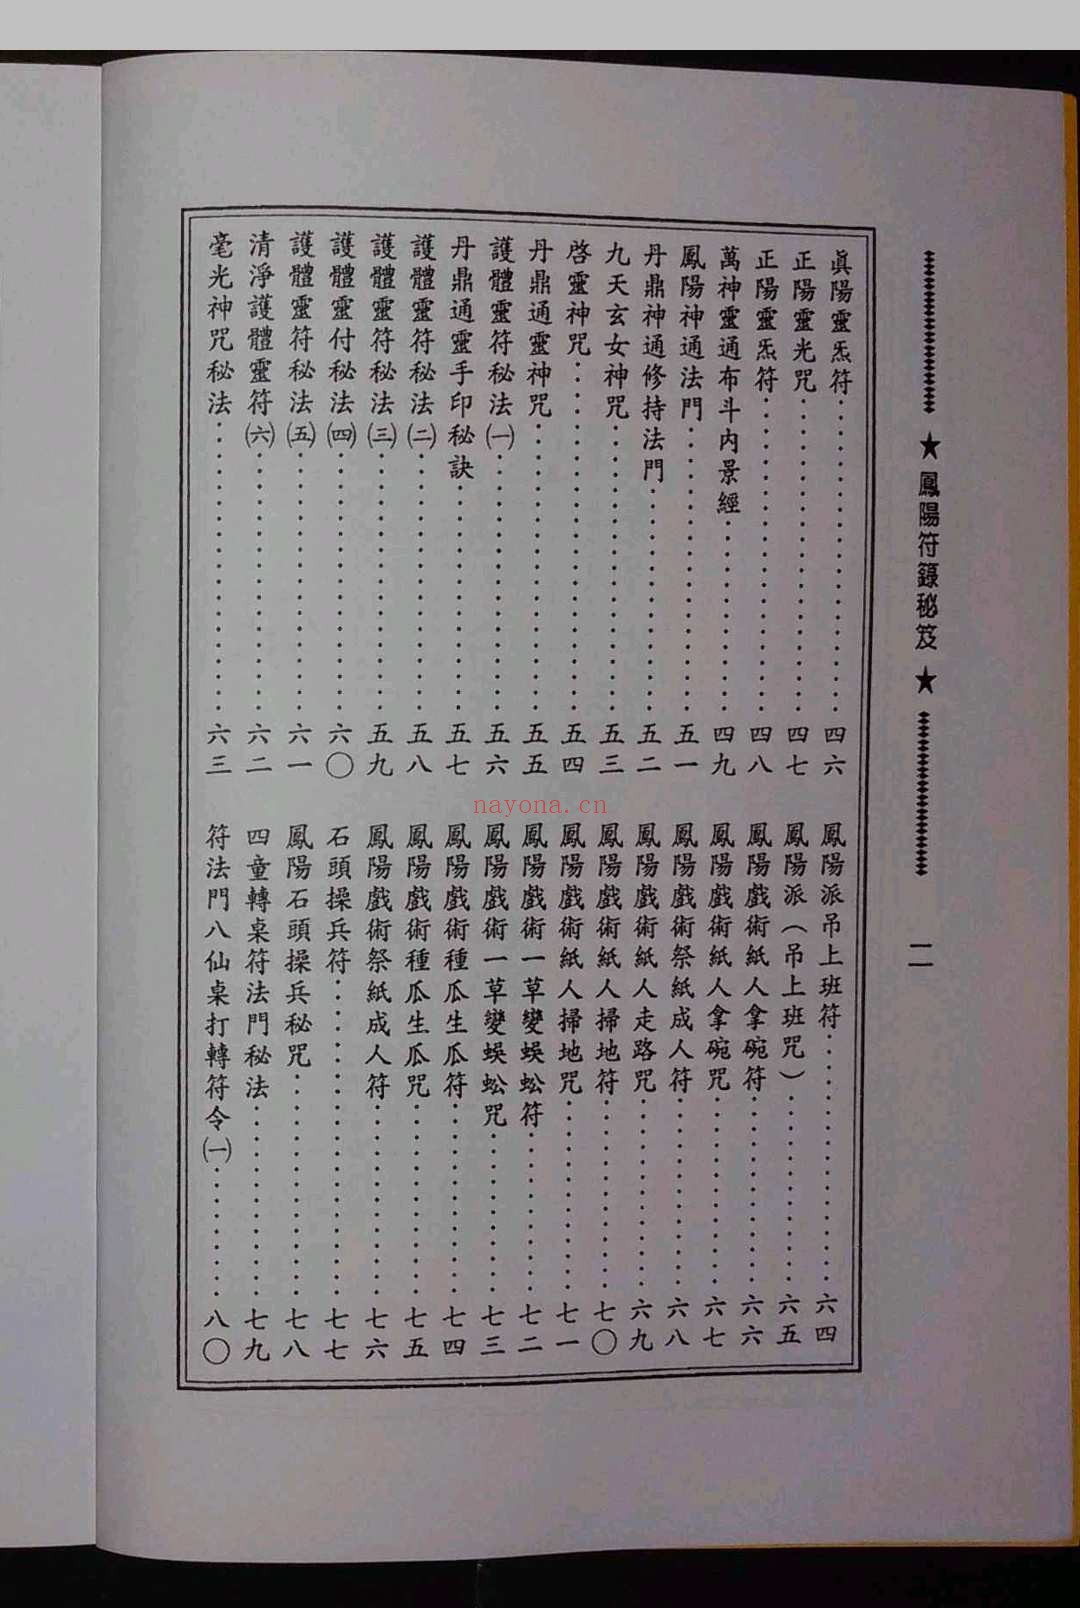 ★鳳陽符籙秘笈★
二
眞陽靈炁符……四六
正陽靈光咒……四七
正陽靈炁符……四八
萬神靈通布斗內景經……四九
鳳陽神通法門……五一
丹鼎神通修持法門……五二
九天玄女神咒……五三
啓靈神咒……五四
丹鼎通靈神咒……五五
護體靈符秘法㈠……五六
丹鼎通靈手印秘訣……五七
護體靈符秘法㈡……五八
護體靈符秘法㈢……五九
護體靈付秘法㈣……六〇
護體靈符秘法㈤……六一
清淨護體靈符㈥……六二
毫光神咒秘法……六三
鳳陽派吊上班符……六四
鳳陽派（吊上班咒）……六五
鳳陽戲術紙人拿碗符……六六
鳳陽戲術紙人拿碗咒……六七
鳳陽戲術祭紙成人符……六八
鳳陽戲術紙人走路咒……六九
鳳陽戲術紙人掃地符……七〇
鳳陽戲術紙人掃地咒……七一
鳳陽戲術一草變蜈蚣符……七二
鳳陽戲術一草變蜈蚣咒……七三
鳳陽戲術種瓜生瓜符……七四
鳳陽戲術種瓜生瓜咒……七五
鳳陽戲術祭紙成人符……七六
石頭操兵符……七七
鳳陽石頭操兵秘咒……七八
四童轉桌符法門秘法……七九
符法門八仙桌打轉符令㈠……八〇
nayona.cn